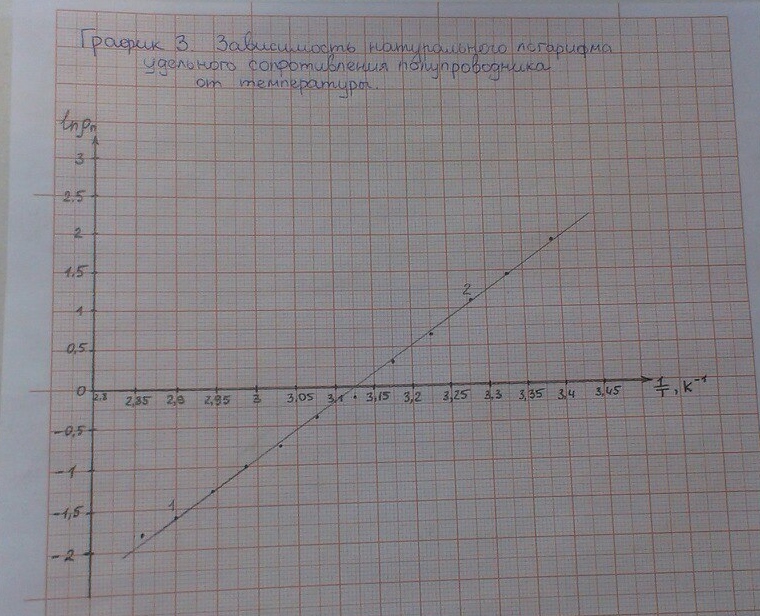 График 3. Зависимость натурального логарифма
удельного сопротивления полупроводника
от температуры.
lnρп
3
2,5
2
1,5
1
0,5
0
2,8 2,85 2,9 2,95 3 3,05 3,1 3,15 3,2 3,25 3,3 3,35 3,4 3,45 1/T, K⁻¹
-0,5
-1
-1,5
-2
1
2